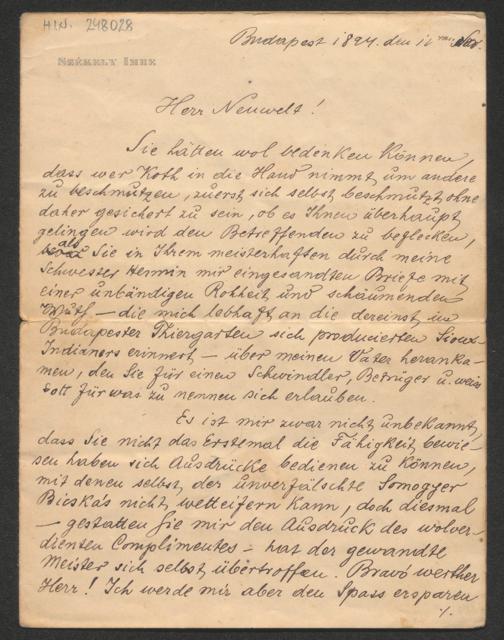 H.I.N. 248028
Budapest 1894. den 11 Nov.
SZÉKELY IMRE
Herr Neuwelt!
Sie hätten wol bedenken können,
dass wer Koth in die Hand nimmt um andere
zu beschmutzen, zuerst sich selbst beschmutzt ohne
daher gesichert zu sein, ob es Ihnen überhaupt
gelingen wird den Betreffenden zu beflecken,
als Sie in Ihrem meisterhaften durch meine
Schwester Hermin mir eingesandten Briefe mit
einer unbändigen Rohheit und schäumenden
Wuth — die mich lebhaft an die dereinst im
Budapester Thiergarten sich producierten Sioux-
Indianers erinnert — über meinen Vater heranka-
men, den Sie für einen Schwindler, Betrüger u. weiss
Gott für was zu nennen sich erlauben.
Es ist mir zwar nicht unbekannt,
dass Sie nicht das Erstemal die Fähigkeit bewie-
sen haben sich Ausdrücke bedienen zu können,
mit denen selbst der unverfälschte Somogyer
Bicskás nicht wetteifern kann, doch diesmal
— gestatten Sie mir den Ausdruck des wolver-
dienten Complimentes — hat der gewandte
Meister sich selbst übertroffen. Bravó werther
Herr! Ich werde mir aber den Spass ersparen
./.